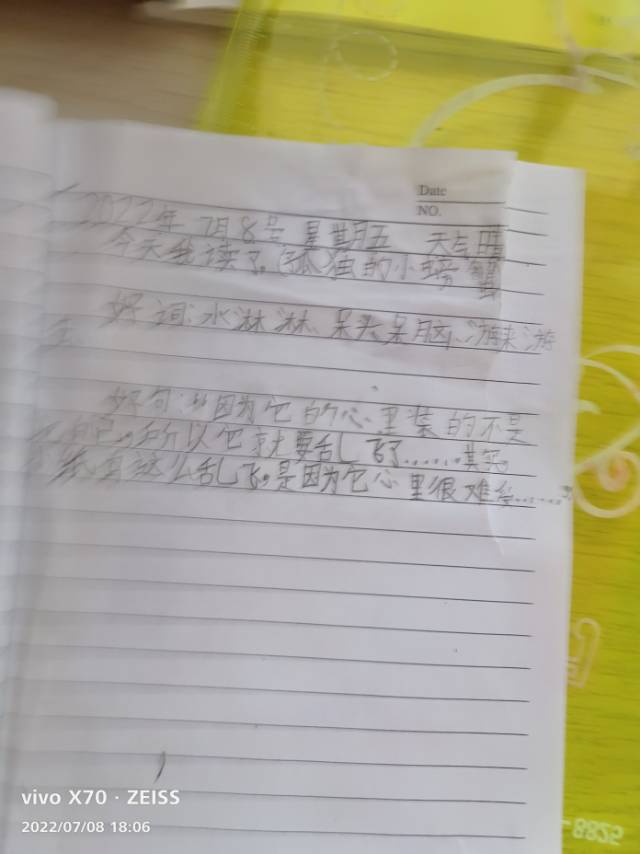 Date
NO.
2022年 7月8号 星期五 天气晴
今天我读了《孤独的小螃蟹
好词:水淋淋、呆头呆脑、游来游
去
好句:"因为它的心里装的不是
自己,所以它就要乱飞了……其实,
纸鱼这么乱飞,是因为它心里很难受……"
vivo X70 · ZEISS
2022/07/08 18:06
8825